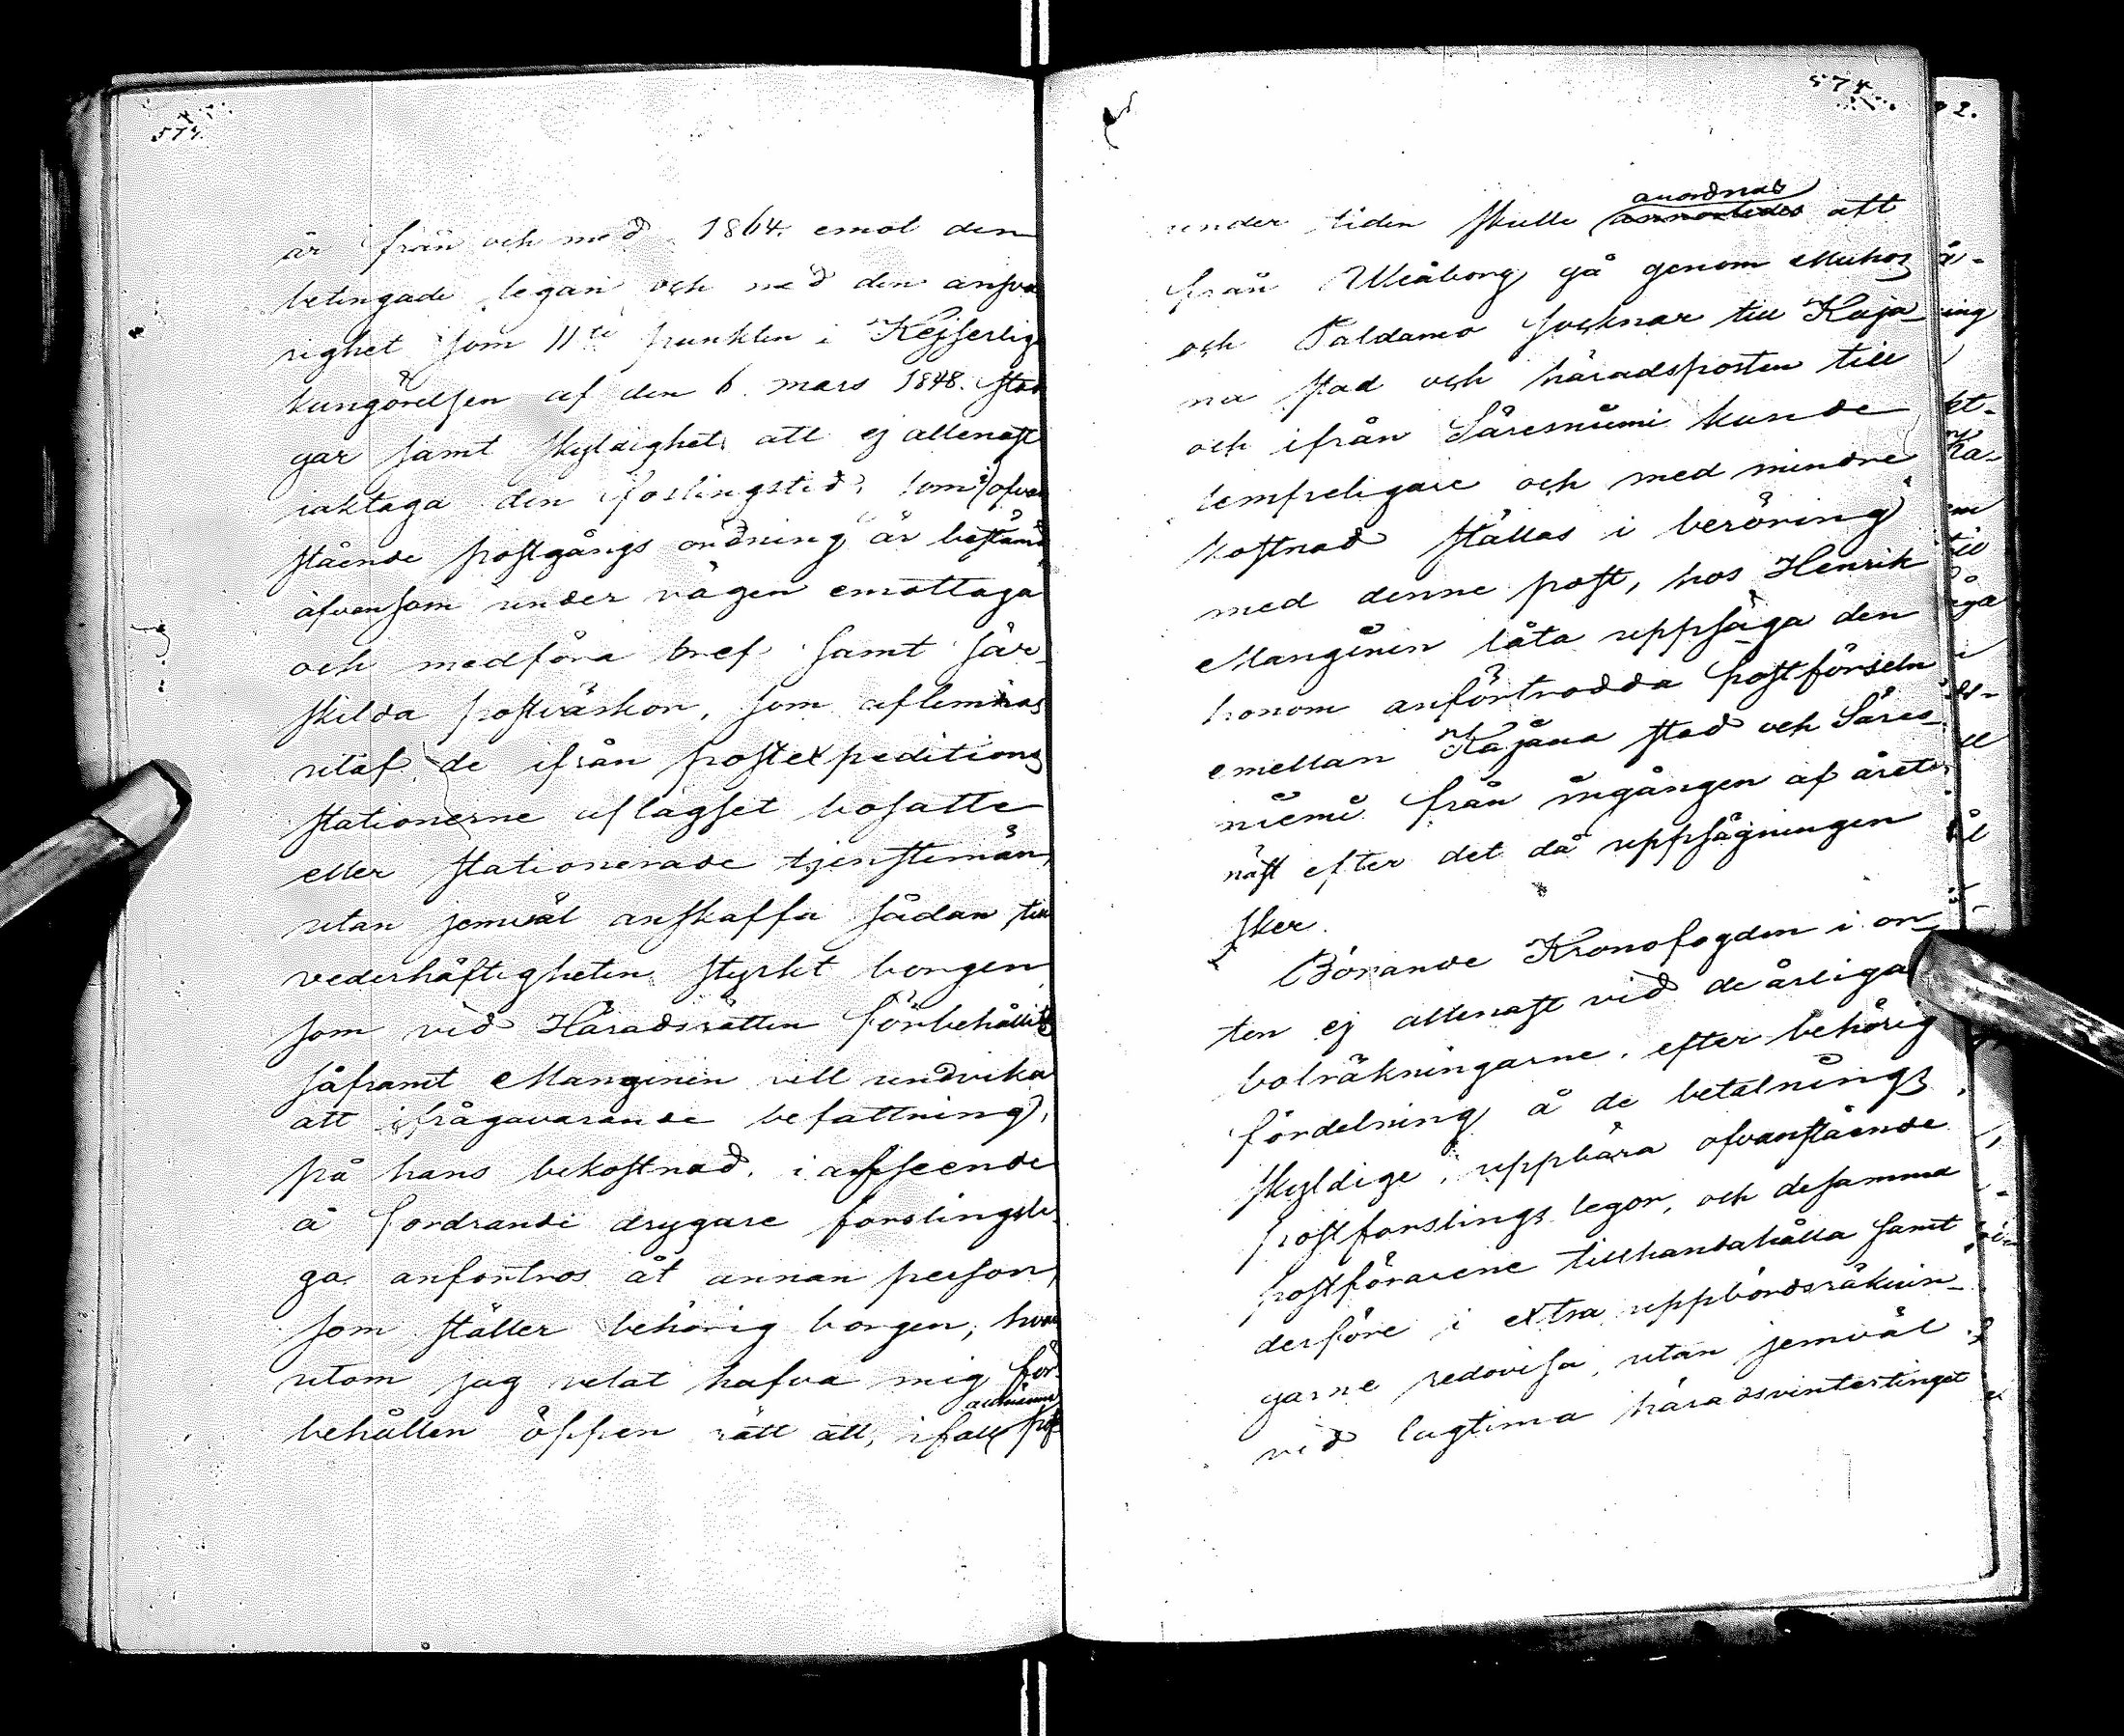 574.
år från och med 1864. emot den
betingade legan och med den ansva
righet som 11te punkten i Kejserlige
kungörelsen af den 6. mars 1848. stad
gar samt skyldighet att ej allenast
iakttaga den forslingstid, som i ofvan
stående postgångs ordning är bestämd
äfvensom under vägen emottaga
och medföra bref samt sär-
skilda postväskor, som aflemnas
utaf de ifrån postexpeditions
stationerne aflägset bosatte
eller stationerade tjenstemän,
utan jemväl anskaffa sådan, till
vederhäftigheten styrkt borgen
som vid Häradsrätten förbehållits
såframt Manginen vill undvika
att ifrågavarande befattning,
på hans bekostnad, i afseende
å fordrande drygare forslingsle-
ga anförtros åt annan person,
som ställer behörig borgen; hvar
utom jag velat hafva mig för-
behållen öppen rätt att, ifall allmänna post
574
under tiden skulle anordnas att
från Uleåborg gå genom Muhos
och Paldamo socknar till Kaja-
na stad och häradsposten till
och ifrån Säresniemi kunde
lempeligare och med mindre
kostnad ställas i beröring
med denne post, hos Henrik
Manginen låta uppsäga den
honom anförtrodda postförseln
emellan Kajana stad och Säres-
niemi från ingången af året
näst efter det då uppsägningen
sker.
Börande Kronofogden i or-
ten ej allenast vid de årliga
bolräkningarne, efter behörig
fördelning å de betalnings
skyldige, uppbära ofvanstående
postforslings legor, och desamma
postförarene tillhandahålla samt
derföre i extra uppbördsräknin-
garne redovisa, utan jemväl
vid lagtima häradsvintertinget